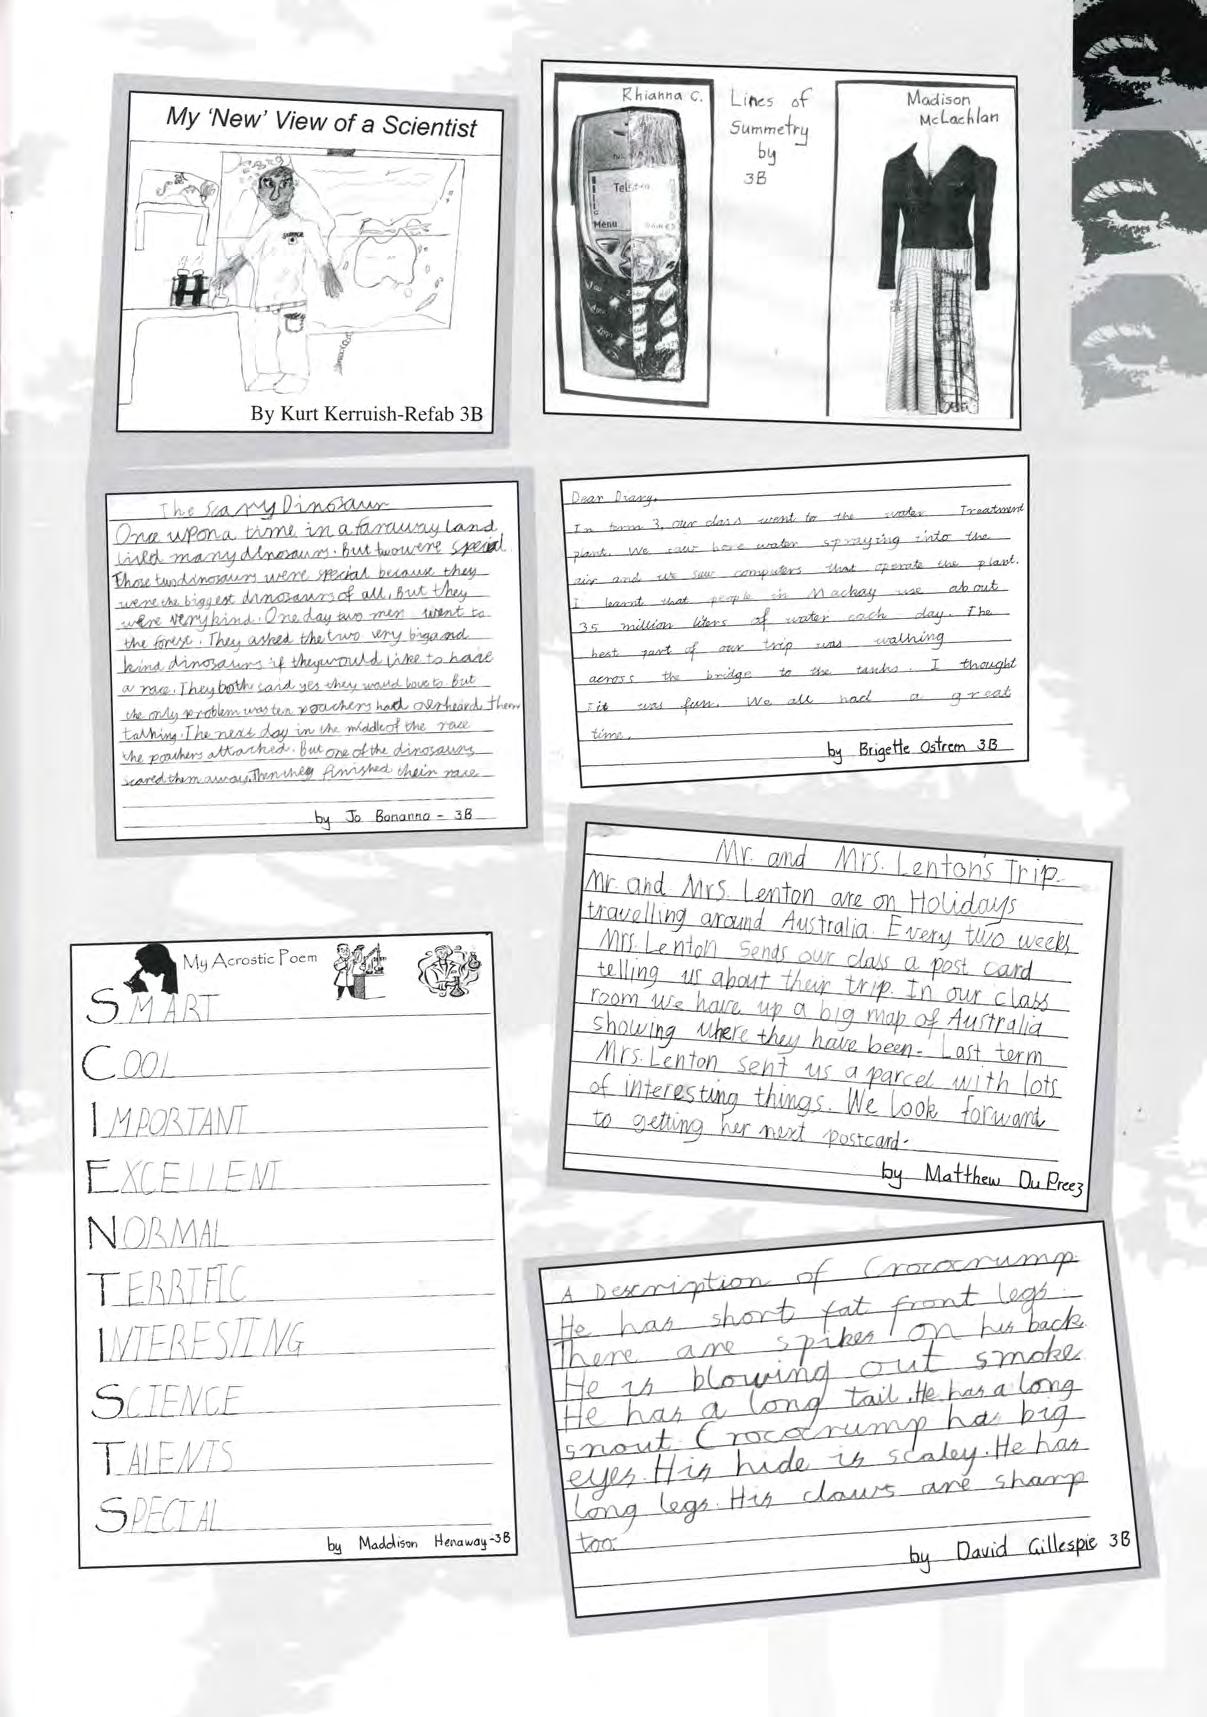 My 'New' View of a Scientist
By Kurt Kerruish-Refab 3B
Rhianna C.
Telstra
Menu
Lines of
Summetry
by
3B
Madison
McLachlan
The Scary Dinosaur
Once upon a time in a faraway land
lived many dinosaurs. But two were special.
Those two dinosaurs were special because they
were the biggest dinosaurs of all, But they
were very kind. One day two men went to
the forest. They asked the two very big and
kind dinosaurs if they would like to have
a race. They both said yes they would love to. But
the only problem was ten poachers had overheard them
talking. The next day in the middle of the race
the poachers attacked. But one of the dinosaurs
scared them away. Then they finished their race
by Jo Bonanno - 3B
Dear Diary,
In term 3, our class went to the water Treatment
plant. We saw bore water spraying into the
air and we saw computers that operate the plant.
I learnt that people in Mackay use about
35 million liters of water each day. The
best part of our trip was walking
across the bridge to the tanks. I thought
it was fun. We all had a great
time.
by Brigette Ostrem 3B
Mr. and Mrs. Lenton's Trip
Mr. and Mrs. Lenton are on Holidays
travelling around Australia. Every two weeks
Mrs. Lenton sends our class a post card
telling us about their trip. In our class
room we have up a big map of Australia
showing where they have been. Last term
Mrs. Lenton sent us a parcel with lots
of interesting things. We look forward
to getting her next postcard.
by Matthew Du Preez
My Acrostic Poem
SMART
COOL
IMPORTANT
EXCELLENT
NORMAL
TERRIFIC
INTERESTING
SCIENCE
TALENTS
SPECIAL
by Maddison Henaway-3B
A Description of Crococrump
He has short fat front legs.
There are spikes on his back.
He is blowing out smoke.
He has a long tail. He has a long
snout. Crococrump has big
eyes. His hide is scaley. He has
long legs. His claws are sharp
too.
by David Gillespie 3B